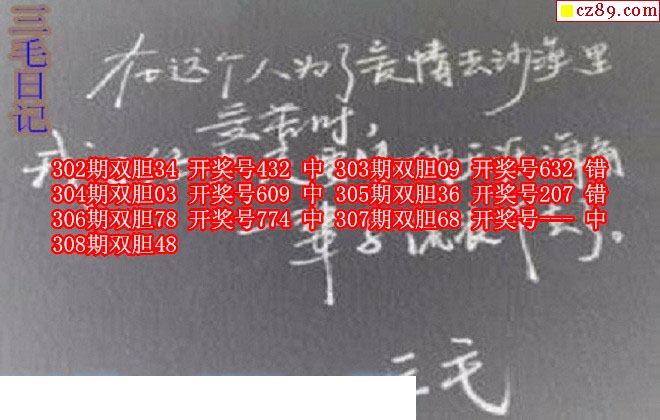 cz89.com
三毛日记
在这个人为了爱情去沙漠里
受苦时，
302期双胆34 开奖号432 中 303期双胆09 开奖号632 错
304期双胆03 开奖号609 中 305期双胆36 开奖号207 错
306期双胆78 开奖号774 中 307期双胆68 开奖号--- 中
308期双胆48
三毛